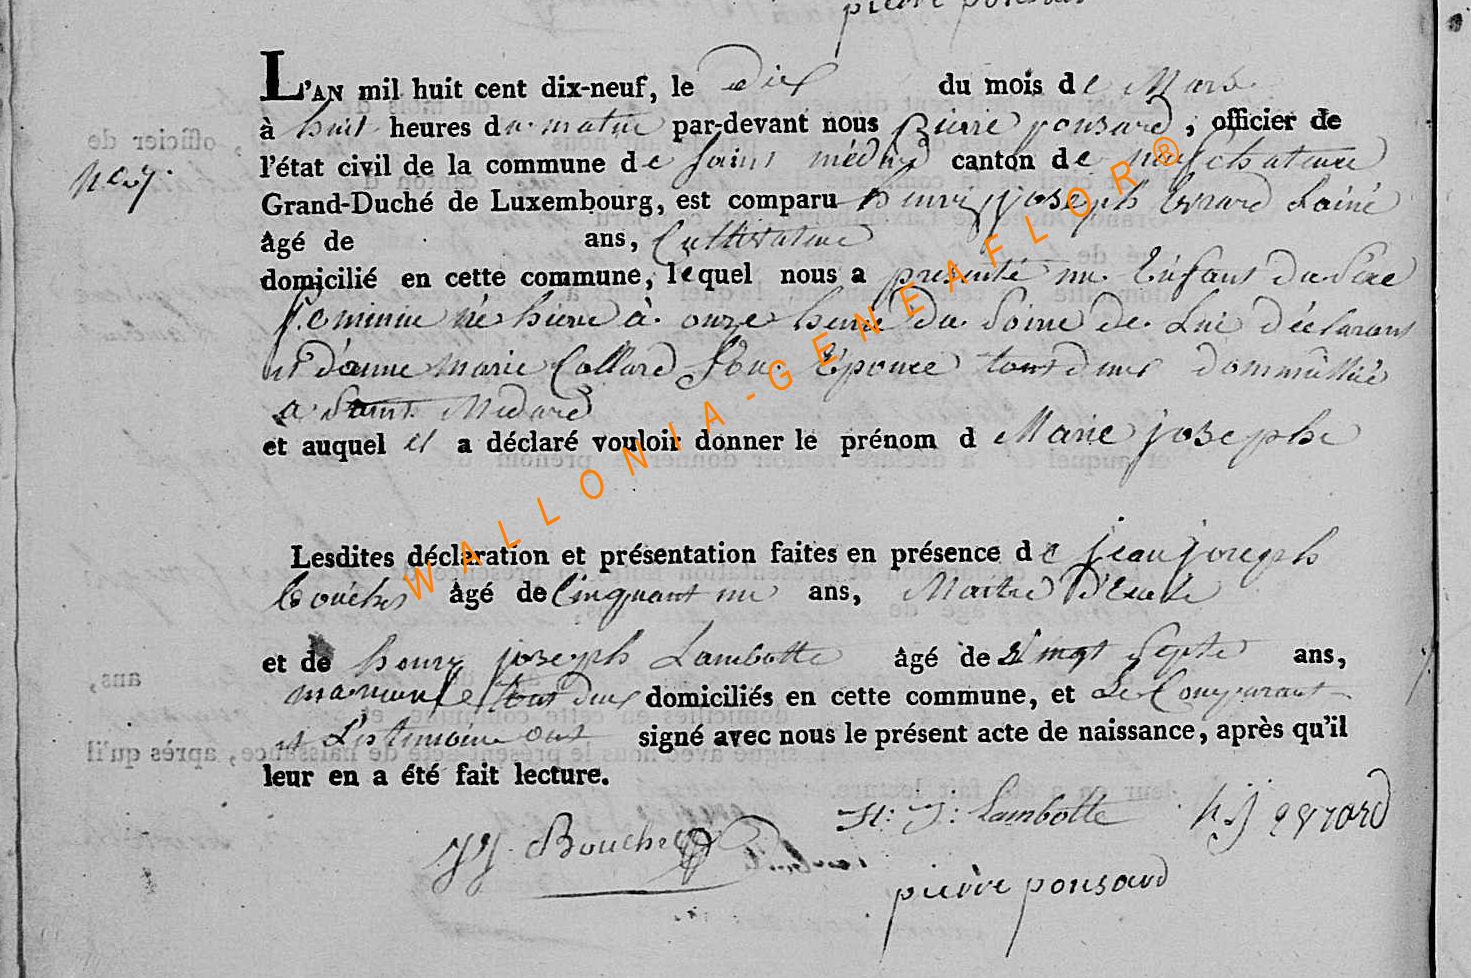 pierre ponsard
L'AN mil huit cent dix-neuf, le dix du mois de Mars
à huit heures du matin par-devant nous pierre ponsard, officier de
l'état civil de la commune de Saint médard canton de neufchateau
Grand-Duché de Luxembourg, est comparu henry joseph Evrard Lainé
âgé de ans, Cultivateur
domicilié en cette commune, lequel nous a presenté un Enfant du Sexe
feminin né hiere à onze heure du Soire de Lui déclarant
et d'anne marie Collard Son Epouse tout deux dommicilliés
a Saint Medard
et auquel il a déclaré vouloir donner le prénom d Marie josephe
Lesdites déclaration et présentation faites en présence de jean joseph
Bouchez âgé de Cinquant un ans, Maitre D'Ecole
et de henry joseph Lambotte âgé de vingt Septe ans,
tout deux domiciliés en cette commune, et Le Comparant
et Les temoins ont signé avec nous le présent acte de naissance, après qu'il
leur en a été fait lecture.
H: J: Lambotte h j evrard
J J Bouchez
pierre ponsard
WALLONIA-GENEAFLOR®